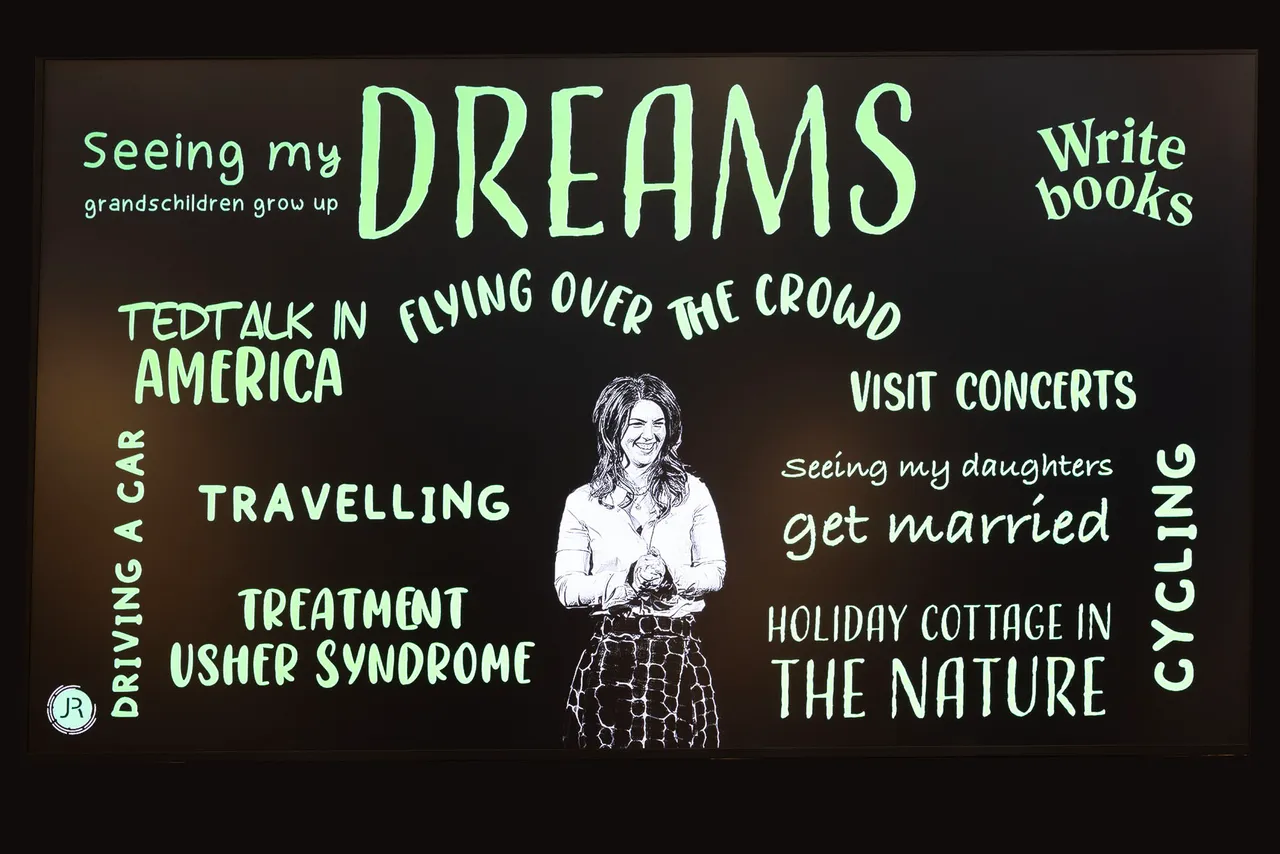 DREAMS
Seeing my
grandschildren grow up
Write
books
FLYING OVER THE CROWD
TEDTALK IN
AMERICA
VISIT CONCERTS
DRIVING A CAR
TRAVELLING
Seeing my daughters
get married
CYCLING
TREATMENT
USHER SYNDROME
HOLIDAY COTTAGE IN
THE NATURE
JR